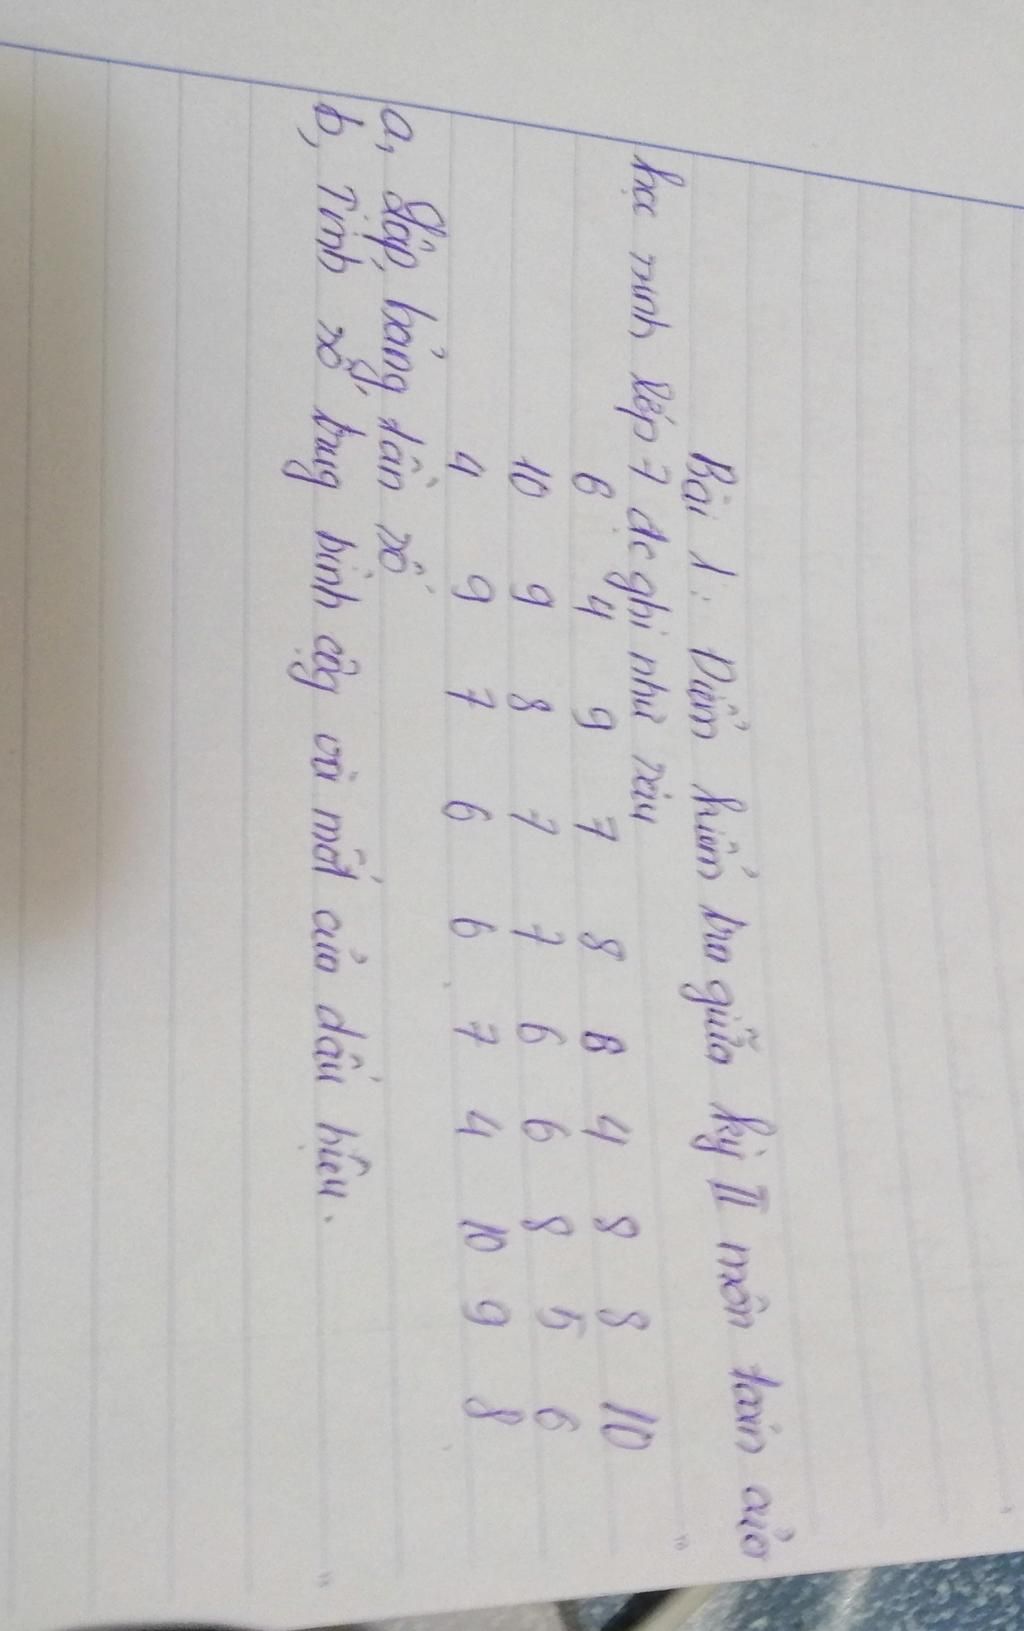 Bài 1: Điểm kiểm tra giữa kỳ II môn toán của
học sinh lớp 7 đc ghi như sau
6 4 9 7 8 8 4 8 8 10
10 9 8 7 7 6 6 8 5 6
4 9 7 6 6 7 4 10 9 8
a, Lập bảng tần số
b, Tính số trung bình cộng và mốt của dấu hiệu.